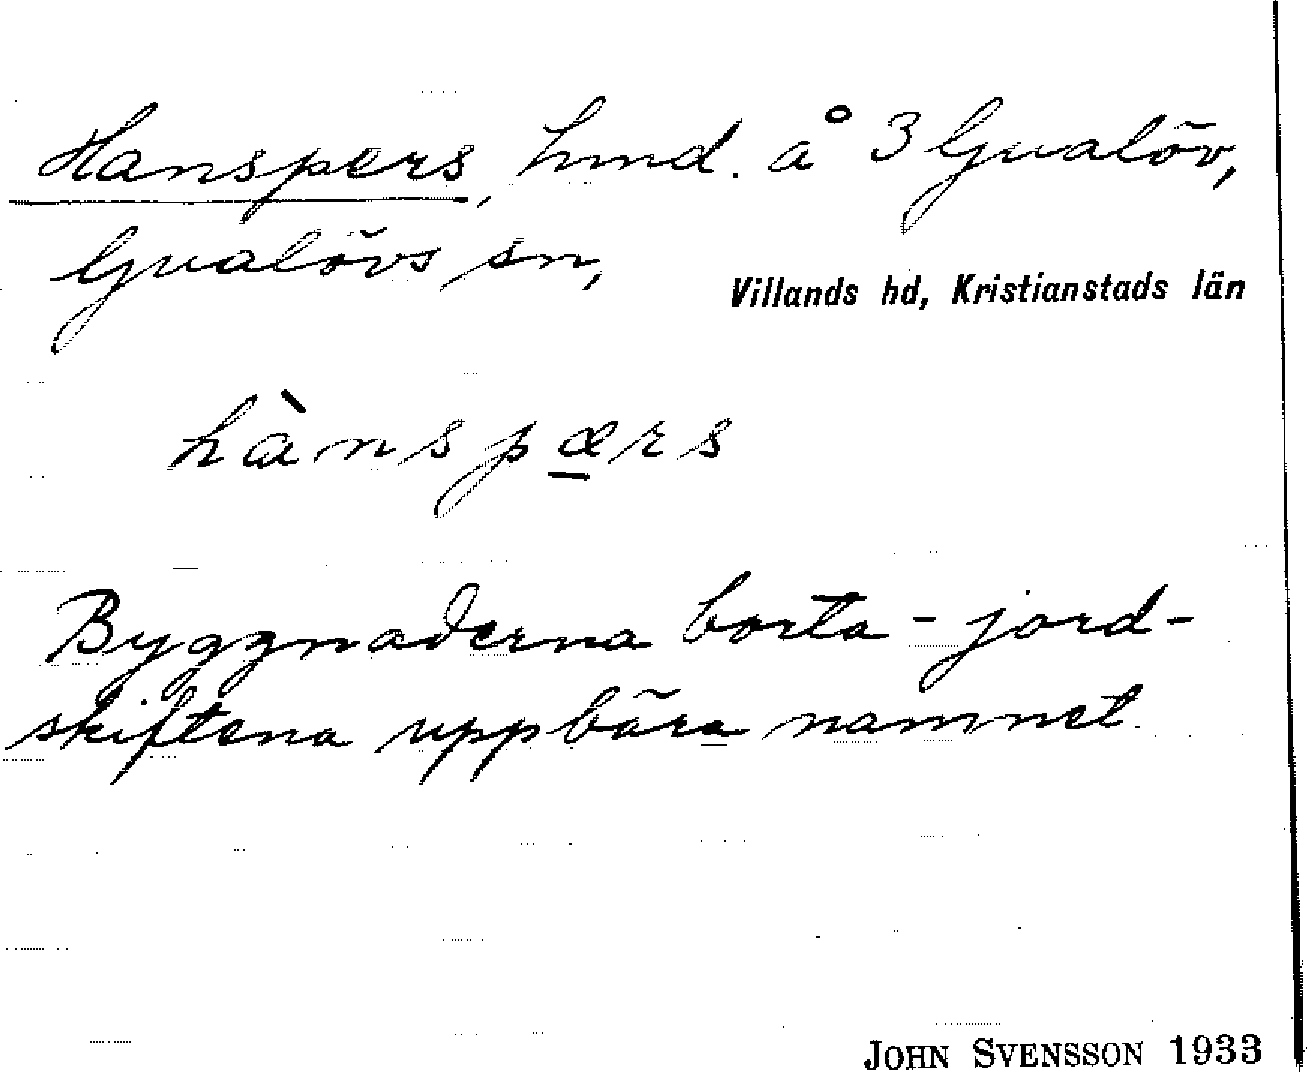 Hanspers, hmd. å 3 Gualöv,
Gualövs sn,
Villands hd, Kristianstads län
hànspærs
Byggnaderna borta - jord-
skiftena uppbära namnet.
JOHN SVENSSON 1933